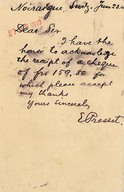 Noiraigue, Switz, June 22
Dear Sir
I have the
honor to acknowledge
the receipt of a cheque
of frs 159,50 for
which please accept
my thanks
Yours sincerely